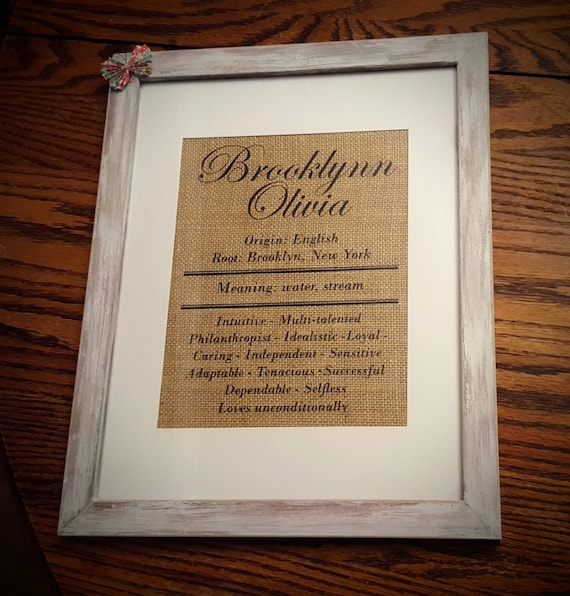 Brooklynn
Olivia
Origin: English
Root: Brooklyn, New York
Meaning: water, stream
Intuitive - Multi-talented
Philanthropist - Idealistic -Loyal -
Caring - Independent - Sensitive
Adaptable - Tenacious -Successful
Dependable - Selfless
Loves unconditionally